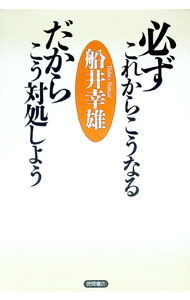 必ず
これからこうなる
だから
こう対処しよう
船井幸雄
Yukio Funai
徳間書店